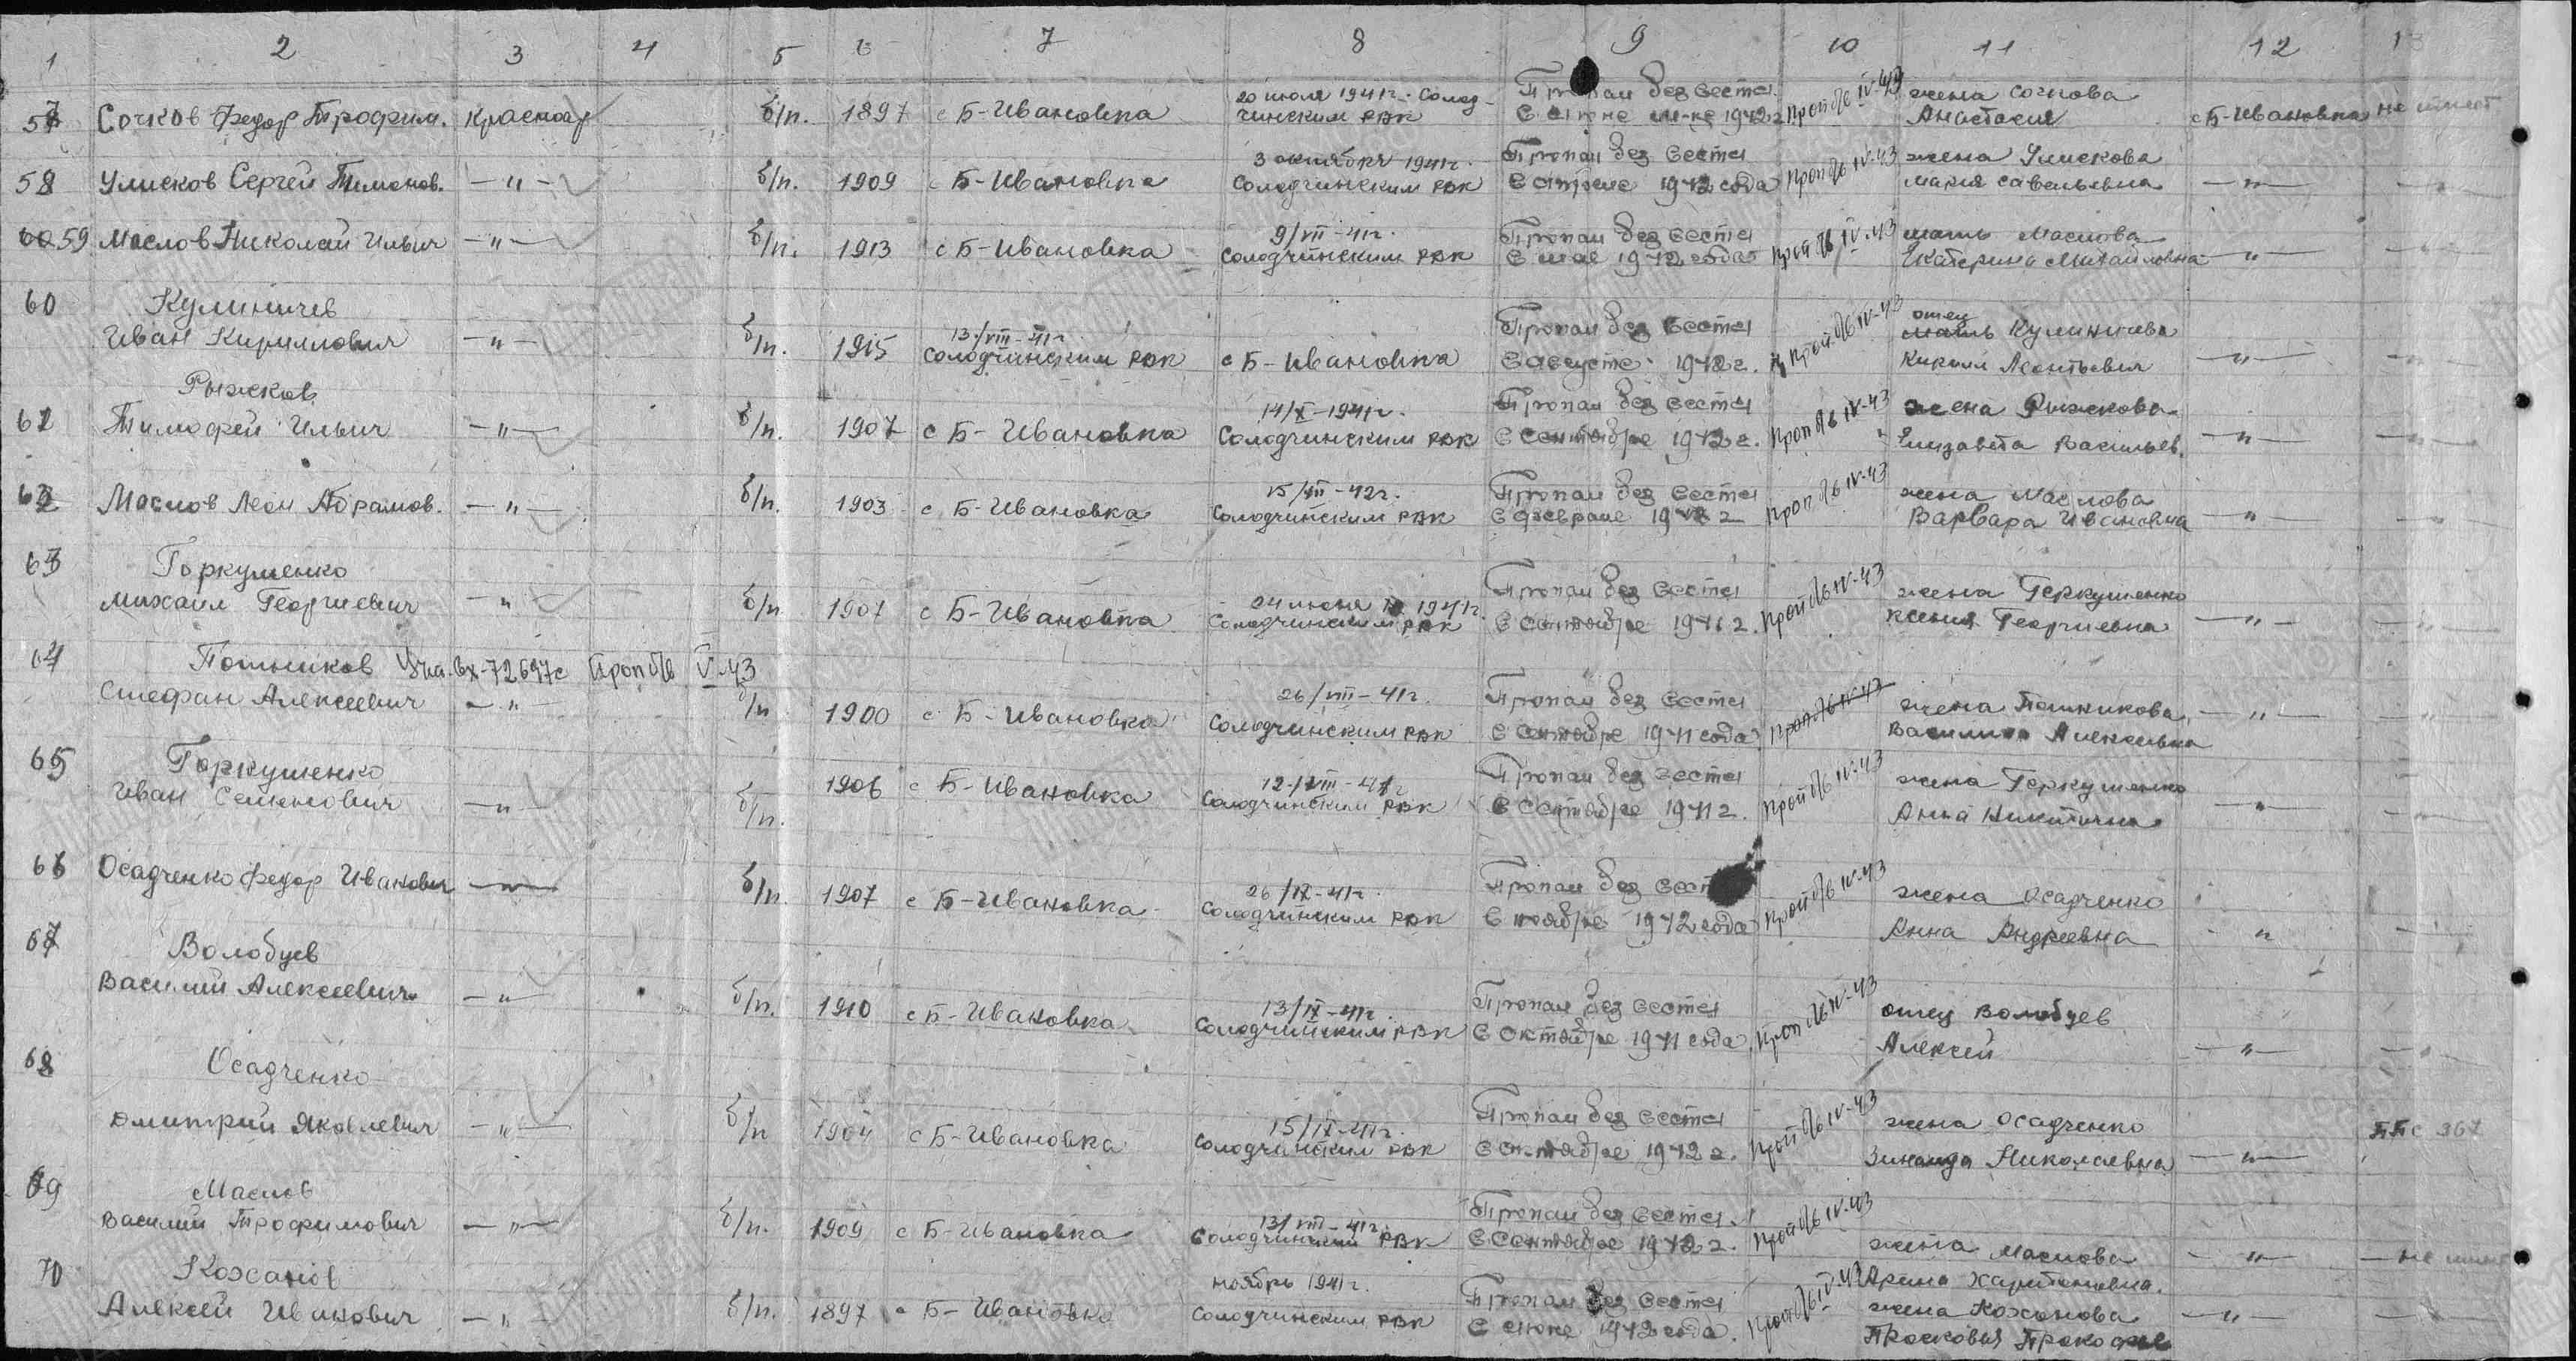 1 2 3 4 5 6 7 8 9 10 11 12 13
57 Сочков Федор Трофим. Красноар б/п. 1897 с Б-Ивановка 20 июля 1941г. Солод- Пропал без вести проп б/в IV-43 жена Сочкова с Б-Ивановка не имеет
чинским РВК 1942г Анастасия
58 Сергей Тимонов. —"— б/п. 1909 с Б-Ивановка 3 октября 1941г. Пропал без вести проп б/в IV-43 жена —"—
Солодчинским РВК в апреле 1942 года Мария Савельевна
59 Маслов Николай Ильич —"— б/п. 1913 с Б-Ивановка 9/VII-41г. Пропал без вести проп б/в IV-43 мать Маслова —"—
Солодчинским РВК в мае 1942 года Екатерина Михайловна
60 Кулиничев
Иван Кириллович —"— б/п. 1915 13/VIII-41г. с Б-Ивановка Пропал без вести проп б/в IV-43 отец Кулиничева —"—
Солодчинским РВК в августе 1942г. Кирилл Леонтьевич
61 Рыжков
Тимофей Ильич —"— б/п. 1907 с Б-Ивановка 14/X-1941г. Пропал без вести проп б/в IV-43 жена Рыжкова —"—
Солодчинским РВК в сентябре 1942г. Елизавета Васильев.
62 Маслов Леон Абрамов. —"— б/п. 1903 с Б-Ивановка -42г. Пропал без вести проп б/в IV-43 жена Маслова —"—
Солодчинским РВК в феврале Варвара Ивановна
63 Горкушенко
Михаил Георгиевич —"— б/п 1907 с Б-Ивановка 24 1941г. Пропал без вести проп б/в IV-43 жена Горкушенко —"—
Солодчинским РВК 1941г. Ксения Георгиевна
64 вх-72697с Проп б/в V-43
Стефан Алексеевич —"— б/п 1900 с Б-Ивановка 26/VIII-41г. Пропал без вести проп б/в IV-43 жена —"—
Солодчинским РВК 1941 года Алексеевна
65 Горкушенко
Иван Семенович —"— б/п. 1906 с Б-Ивановка 12/VIII-41г Пропал без вести проп б/в IV-43 жена Горкушенко —"—
Солодчинским РВК 1941г. Анна Никитична
66 Осадченко Федор Иванович —"— б/п. 1907 с Б-Ивановка 26/IX-41г. Пропал без вести проп б/в IV-43 жена Осадченко —"—
Солодчинским РВК в ноябре 1942 года Анна Андреевна
67 Волобуев
Василий Алексеевич —"— б/п. 1910 с Б-Ивановка 13/IX-41г. Пропал без вести проп б/в IV-43 отец Волобуев —"—
Солодчинским РВК в октябре 1941 года Алексей
68 Осадченко
Дмитрий Яковлевич —"— б/п 1904 с Б-Ивановка 15/IX-41г. Пропал без вести проп б/в IV-43 жена Осадченко —"— ППс
Солодчинским РВК 1942г. Зинаида Николаевна
69 Маслов
Василий Трофимович —"— б/п. 1909 с Б-Ивановка 13/VIII-41г. Пропал без вести проп б/в IV-43 жена Маслова —"— не имеет
Солодчинским РВК в сентябре 1942г. Арина Харитоновна.
70 Коханов
Алексей Иванович —"— б/п. 1897 с Б-Ивановка ноябрь 1941г. Пропал без вести проп б/в IV-43 жена Коханова —"—
Солодчинским РВК в июне 1942 года. Прасковья